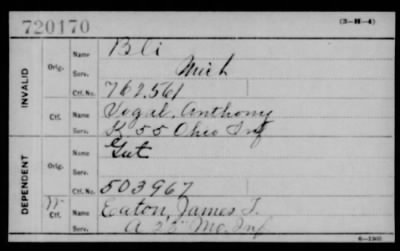 720170
(3-H-4)
INVALID
Orig.
Name
Serv.
Mich
Ctf. No.
762,561
Ctf.
Name
Vogal, Anthony
Serv.
K. 55 Ohio Inf
DEPENDENT
Orig.
Name
Serv.
Ctf. No.
503967
Ctf.
Name
Eaton, James T.
Serv.
A Mo. Inf